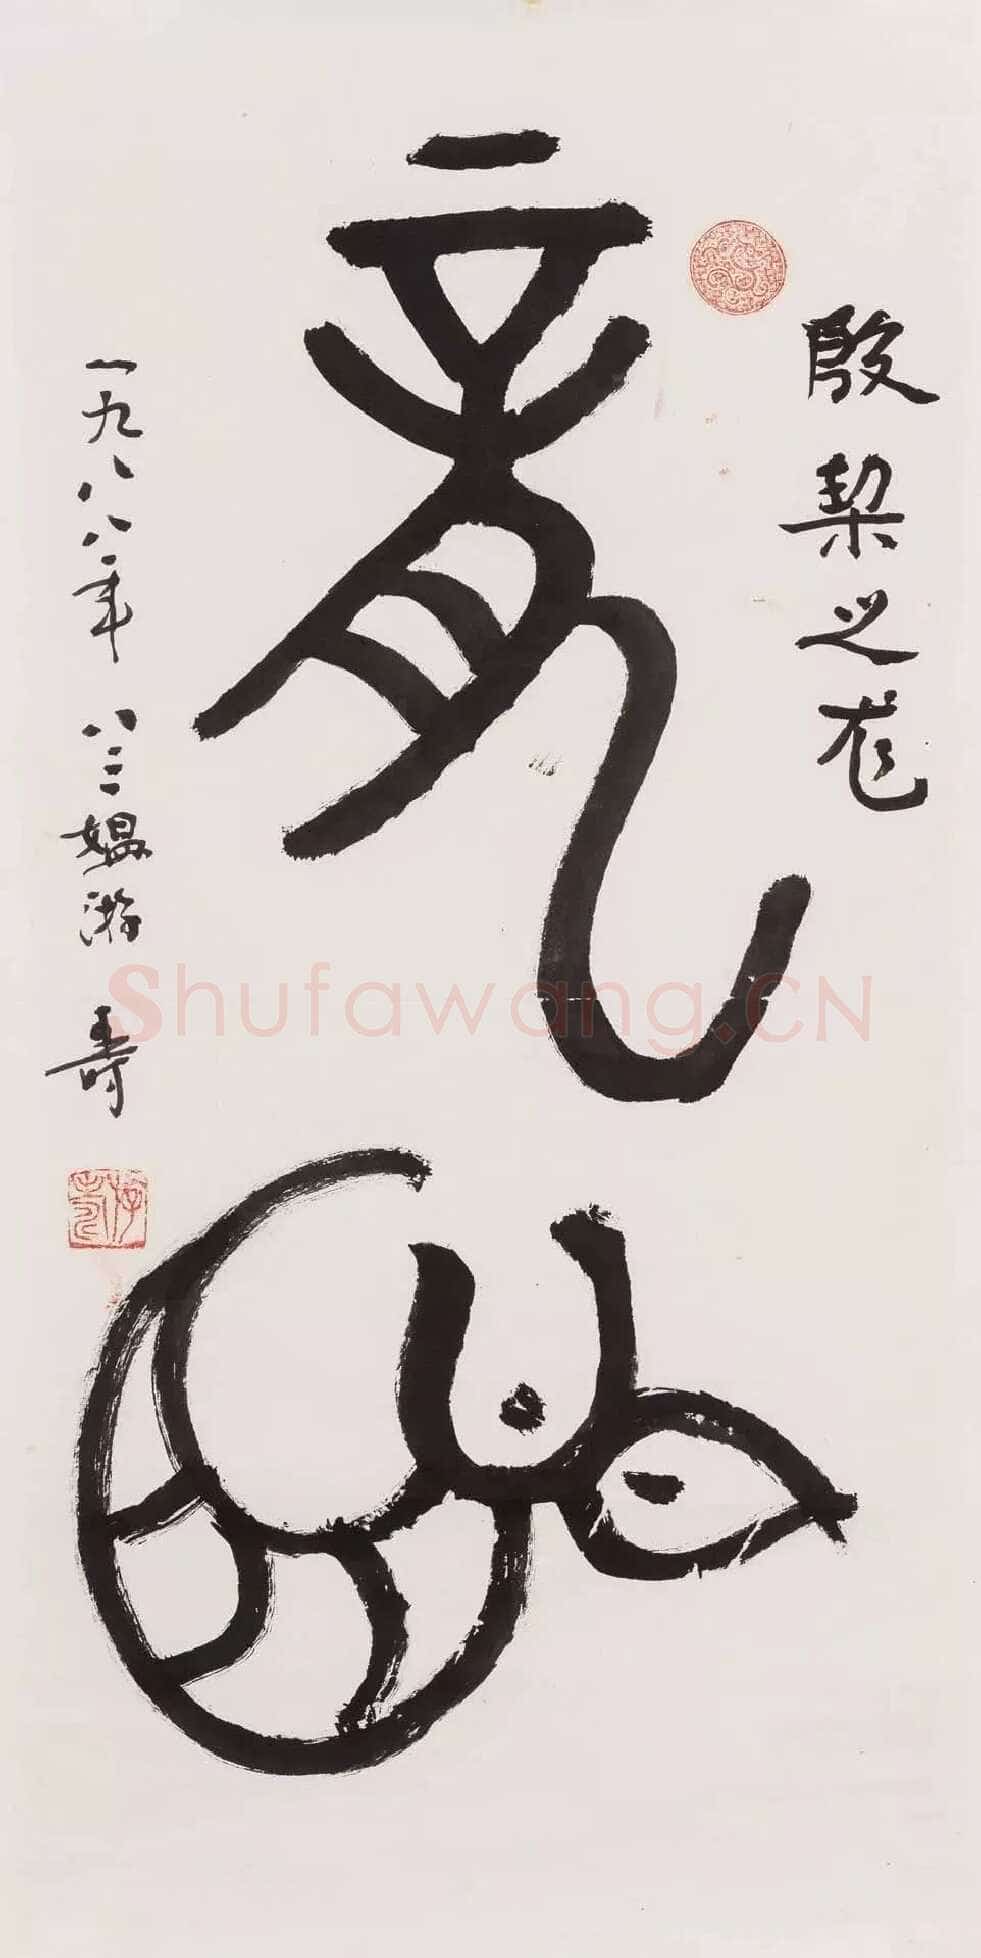 殷栔之龙
龍
一九八八年 八三媪游寿
游寿
Shufawang.CN